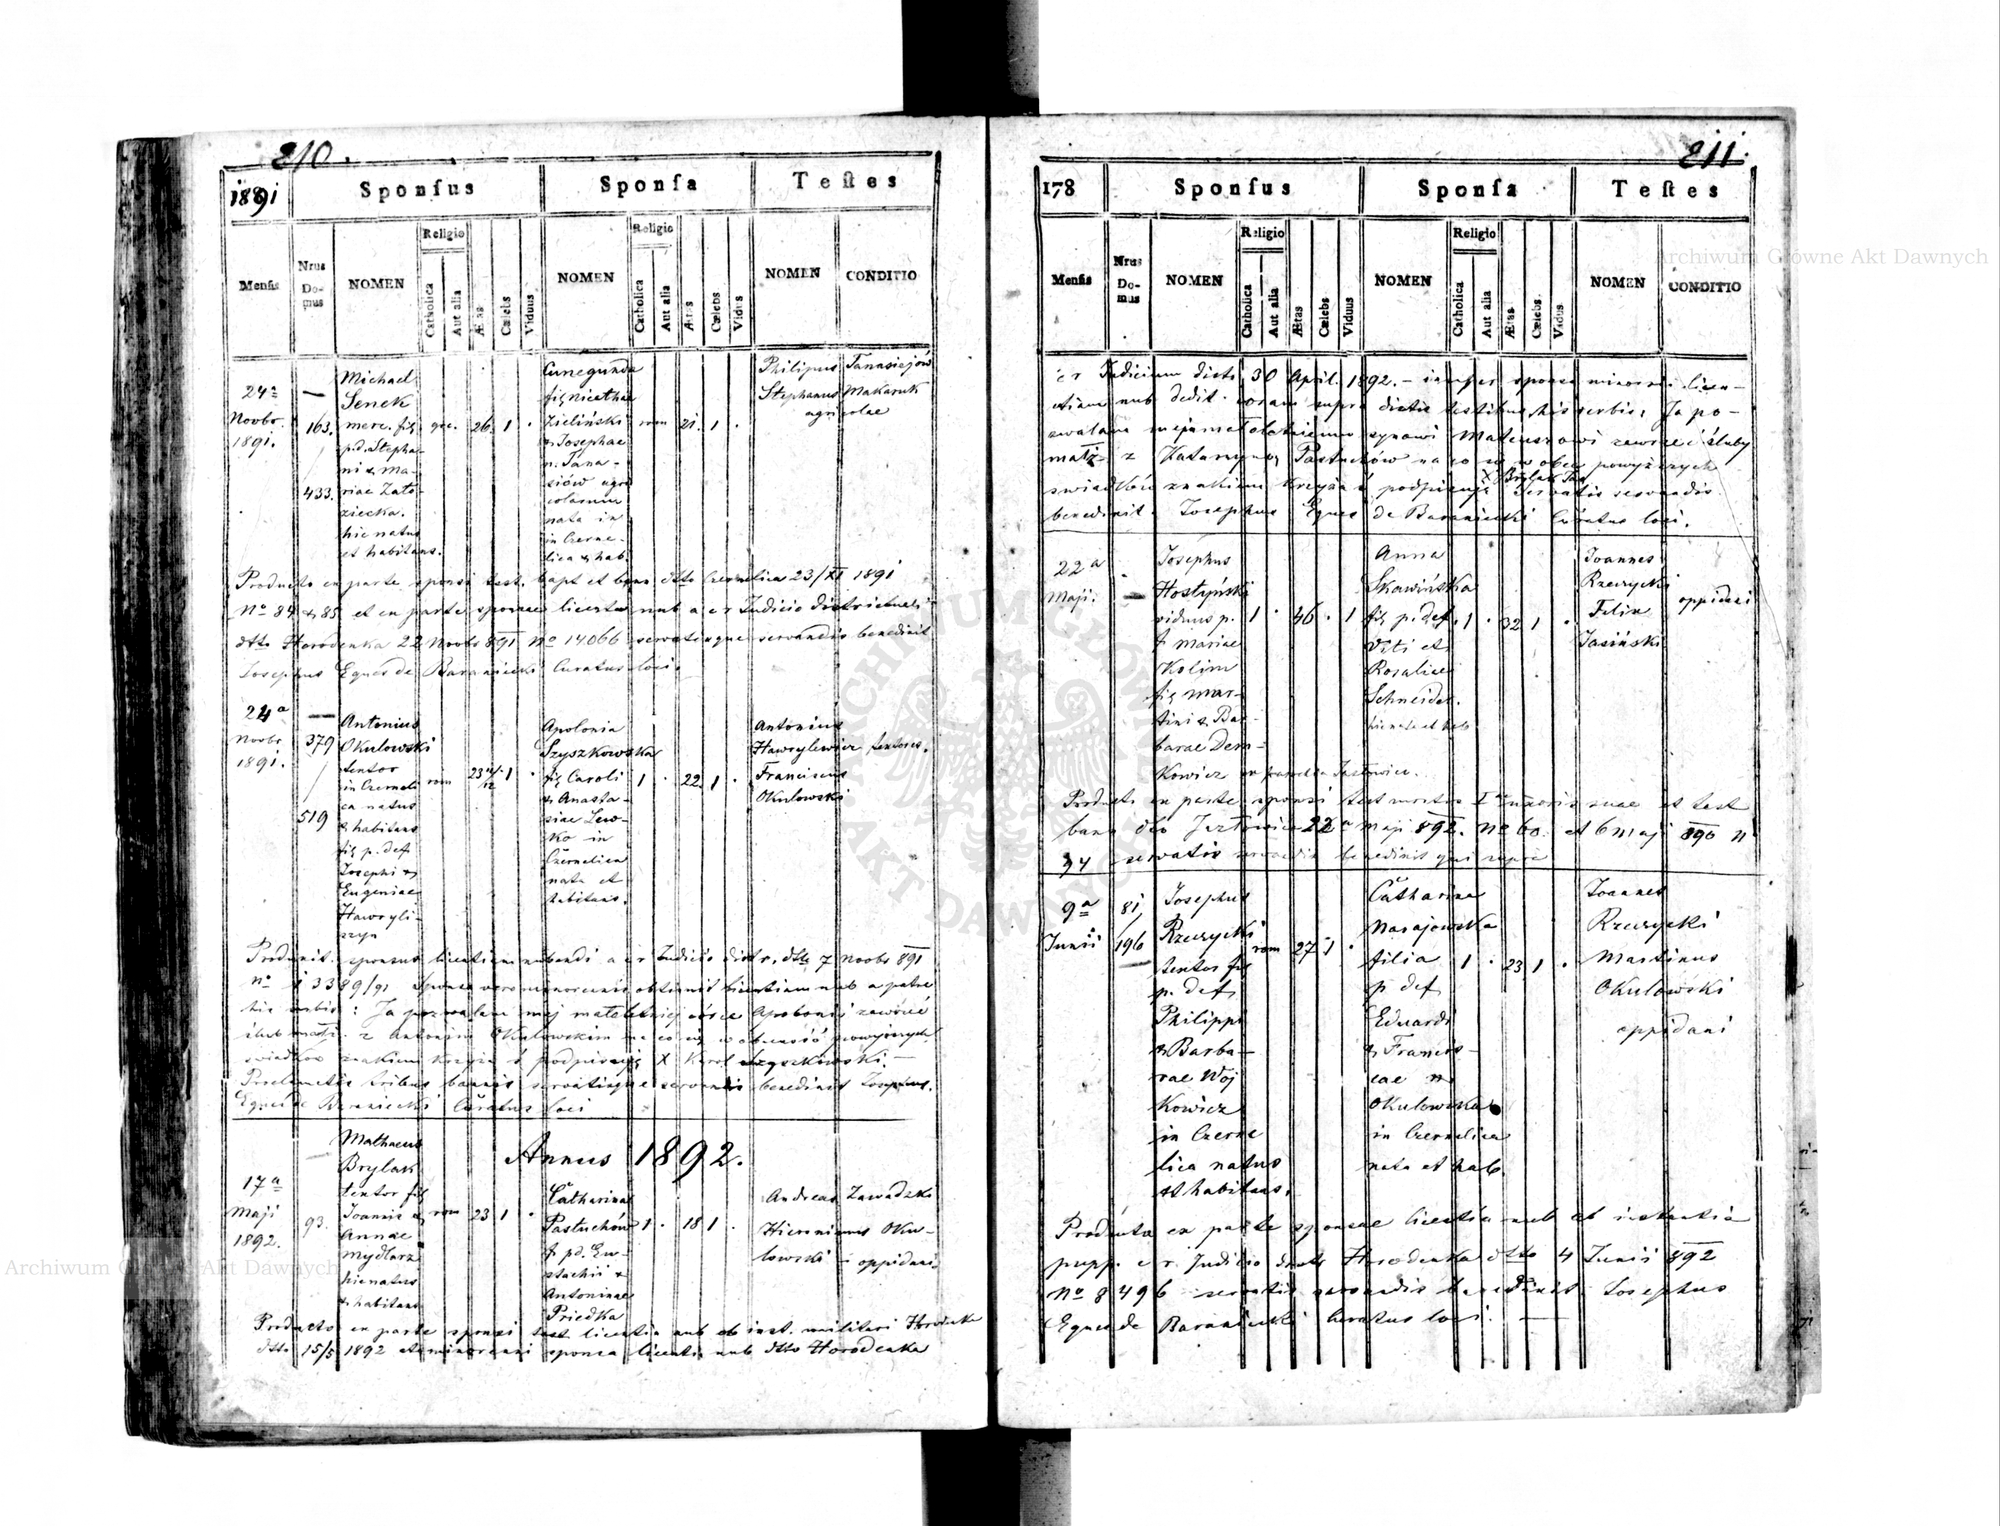 210.
1891
Sponsus
Sponsa
Testes
Mensis
Nrus Domus
NOMEN
Religio
Catholica
Aut alia
Ætas
Cœlebs
Viduus
NOMEN
Religio
Catholica
Aut alia
Ætas
Cœlebs
Vidus
NOMEN
CONDITIO
24a
Novbr.
1891.
163.
433.
Michael
Senek
merc. fil
p.d. Stepha-
ni & Ma-
riae Zato-
ziecka.
hic natus
et habitans.
grc.
26.
1
Cunegunda
Zieliński
rom
21.
1.
& Josephae
n. Tana-
siów agri
colarum
nata in
in Czerne-
lica & hab.
Philipus Tanasiejów
Stephanus Makaruk
agricolae
Producto ex parte sponsi test. bapt et bann dtto Czernelica 23/XI 1891
No 84 & 85 et ex parte sponsae licentia nub a c r Judicio districtuali
dtto Horodenka 22 Novbr 891 No 14066 servatisque servandis benedixit
Josephus Eques de Baraniecki Curatus loci.
24a
Novbr
1891.
379
519
Antonius
Okulowski
textor
in Czerneli
ca natus
& habitans
fil p. def
Josephi &
Eugeniae
Hawryli-
szyn
rom
1
Apolonia
Szyszkowska
fil Caroli
& Anasta-
siae Lew-
ko in
Czernelica
nata et
habitans.
1
22
1
Antonius
Hawrylewicz textores.
Franciscus
Okulowski
Produxit sponsus licentiam nubendi a c r Judicio distr, dtto 7 Novbr 891
No 13389/91 Sponsa vero minorennis obtinuit licentiam nub a patre
his verbis: Ja pozwalam mej małoletniej córce Apolonii zawrzeć
ślub małż. z Antonim Okulowskim na co się w obecność powyższych
świadków znakiem krzyża ś podpisuję X Karol Szyszkowski —
Proclamatis tribus bannis servatisque servandis benedixit Josephus
Eques de Baraniecki Curatus loci
Annus 1892.
17a
Maji
1892.
93.
Mathaeus
Brylak
textor fil
Joannis &
Annae
Mydlarz
hic natus
& habitans
rom
23
1
Catharina
Pastuchów
f. pd. Eu-
stachii &
Antoninae
Priedka
1.
18
1
Andreas Zawadzki
Hieronimus Oku-
lowski – oppidani.
Producto ex parte sponsi test licentia nub ab inst. militari Horodenka
dtto 15/5 1892 et minorenni sponsa licentia nub dtto Horodenka
211.
178
Sponsus
Sponsa
Testes
Mensis
Nrus Domus
NOMEN
Religio
Catholica
Aut alia
Ætas
Cœlebs
Viduus
NOMEN
Religio
Catholica
Aut alia
Ætas
Cœlebs.
Vidus
NOMEN
CONDITIO
c r Judicium dicto 30 April. 1892. – semper sponso minorenni licen-
etiam nub dedit coram supra dictis testibus his verbis, Ja po-
zwalam mojemu małoletniemu synowi Mateuszowi zawrzeć śluby
małż z Katarzyną Pastuchów na co się w obec powyższych
świadków znakiem krzyża ś podpisuję X Brylak Jan Servatis servandis
benedixit. Josephus Eques de Baraniecki Curatus loci.
22a
Maji.
Josephus
Hostyński
viduus p.
f Mariae
Kolim
fil Mar-
tini & Bar-
barae Dem-
kowicz ex parochia Jazłowiec.
1
46
1
Anna
Skawińska
fil p. def.
Viti et
Rosaliae
Schneider.
hic nata et hab
1
32
1
Joannes
Rzeszycki
Felix
Jasiński
oppidani
Producto ex parte sponsi test mortis Iae uxoris suae et test
bann dtto Jazłowiec 22a Maji 892. No 60. et 6 Maji 890 N
94 servatis servandis benedixit qui supra
9a
Junii
81,
196
Josephus
Rzeszycki
textor fil
p. def
Philippi
& Barba-
rae Woj
kowicz
in Czerne
lica natus
et habitans.
rom
27
1
Catharina
Narajowska
filia
p def
Eduardi
& Francis-
cae n
Okulowska
in Czernelica
nata et hab.
1
23
1
Joannes
Rzeszycki
Martinus
Okulowski
oppidani
Producta ex parte sponsae licentia nub ab instantia
pupp. c r. Judicio distr Horodenka dtto 4 Junii 892
No 8496 servatis servandis benedixit Josephus
Eques de Baraniecki Curatus loci. —
Archiwum Główne Akt Dawnych
Archiwum Główne Akt Dawnych
ARCHIWUM GŁÓWNE
AKT DAWNYCH